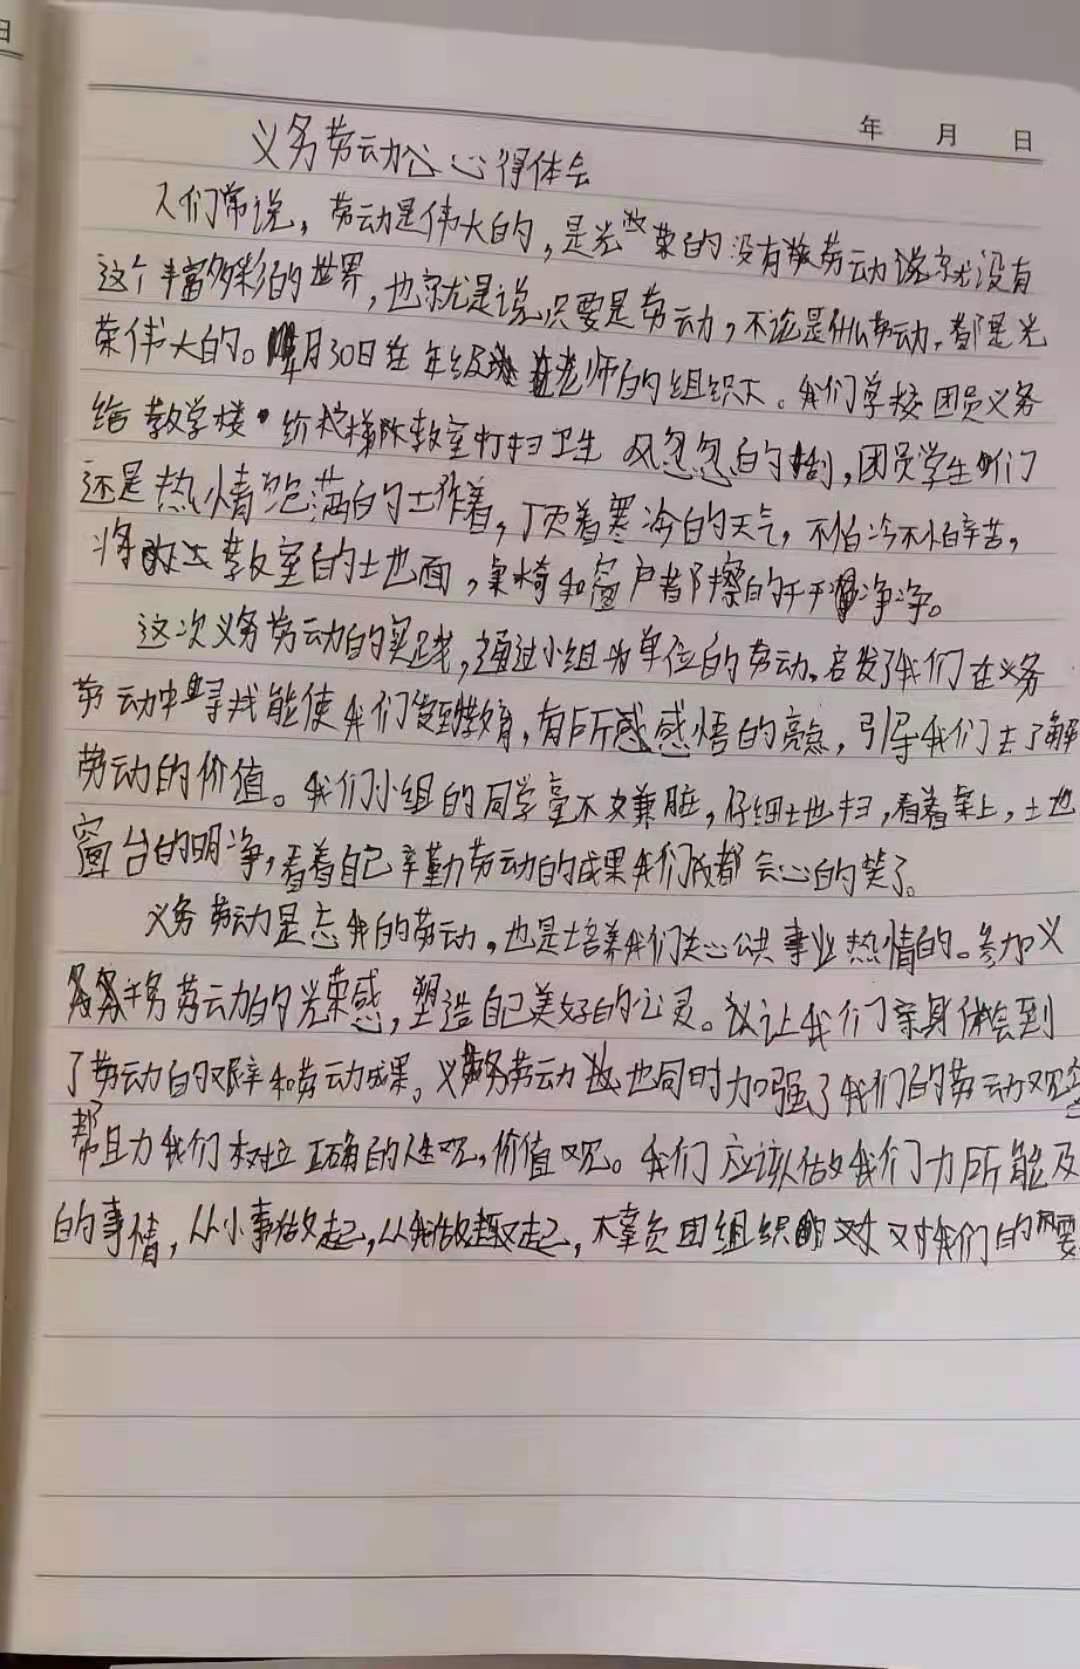 日
年 月 日
义务劳动心得体会
人们常说，劳动是伟大的，是光荣的没有劳动就没有
这个丰富多彩的世界，也就是说，只要是劳动，不论是什么劳动，都是光
荣伟大的。月30日在年级老师的组织下。我们学校团员义务
给教学楼 给梯阶教室打扫卫生 风忽忽的刮，团员学生们
还是热情饱满的工作着，顶着寒冷的天气，不怕冷不怕辛苦，
将教室的地面，桌椅和窗户都擦的干干净净。
这次义务劳动的实践，通过小组为单位的劳动。启发了我们在义务
劳动中寻找能使我们受到教育，有所感感悟的亮点，引导我们去了解
劳动的价值。我们小组的同学毫不嫌脏，仔细地扫，看着桌上，地
窗台的明净，看着自己辛勤劳动的成果我们都会心的笑了。
义务劳动是忘我的劳动，也是培养我们关心公共事业热情的。参加义
务劳动的光荣感，塑造自己美好的心灵。让我们亲身体会到
了劳动的艰辛和劳动成果。义务劳动也同时加强了我们的劳动观念
帮助我们树立正确的人生观，价值观。我们应该做我们力所能及
的事情，从小事做起，从我做起，不辜负团组织对我们的